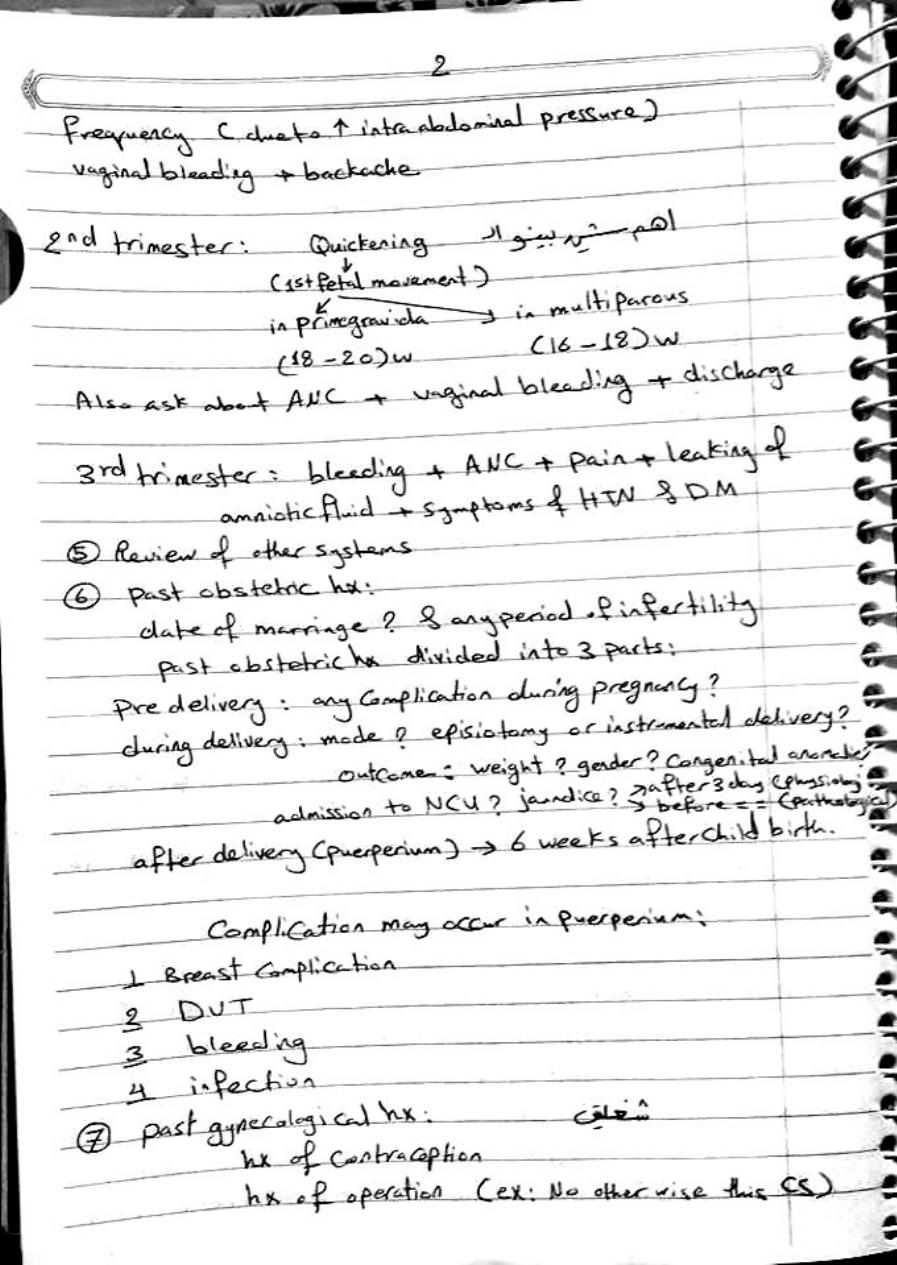 2
frequency (due to ↑ intra abdominal pressure)
vaginal bleading + backache
2nd trimester: Quickening اهم شي بينو الـ
↓
(1st fetal movement)
in primegravida → in multiparous
(18-20)w (16-18)w
Also ask about ANC + vaginal bleading + discharge
3rd trimester: bleeding + ANC + pain + leaking of
amniotic fluid + symptoms of HTN & DM
⑤ Review of other systems
⑥ past obstetric hx:
date of marriage? & any period of infertility
past obstetric hx divided into 3 parts:
Pre delivery: any Complication during pregnancy?
during delivery: mode? episiotomy or instrumental delivery?
outcome: weight? gender? Congenital
admission to NCU? jaundice? → after 3 day (physiology
→ before = = (pathological)
after delivery (puerperium) → 6 weeks after child birth.
Complication may occur in puerperium:
1 Breast Complication
2 DVT
3 bleeding
4 infection
⑦ past gynecological hx:
hx of Contraception
hx of operation (ex: No other wise this CS)